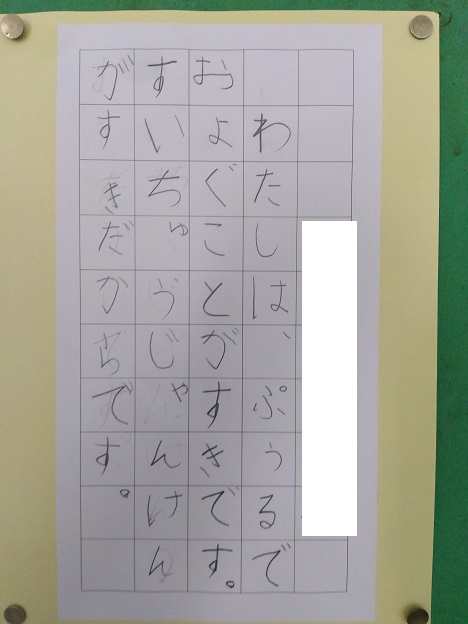 わたしは、ぷぅるで
およぐことがすきです。
すいちゅうじゃんけん
がすきだからです。